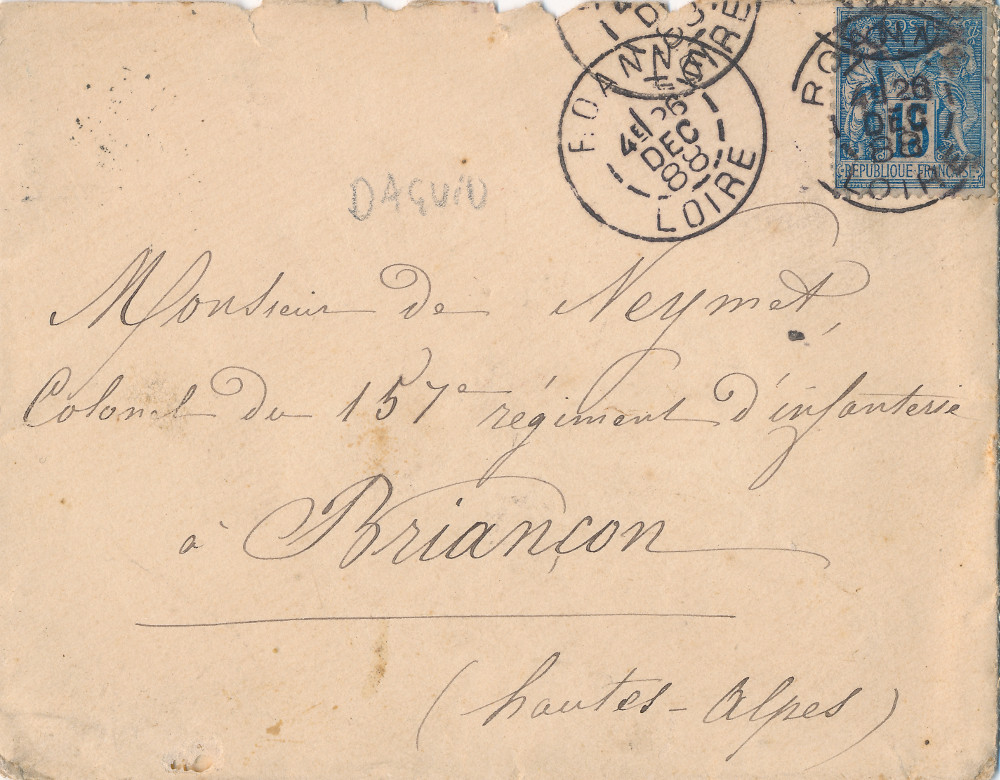 ROANNE
4E/
26
DEC
88
LOIRE
POSTES
15
REPUBLIQUE FRANCAISE
DAGUIN
Monsieur de Neymet,
Colonel du 157e régiment d'infanterie
à Briançon
(hautes-Alpes)